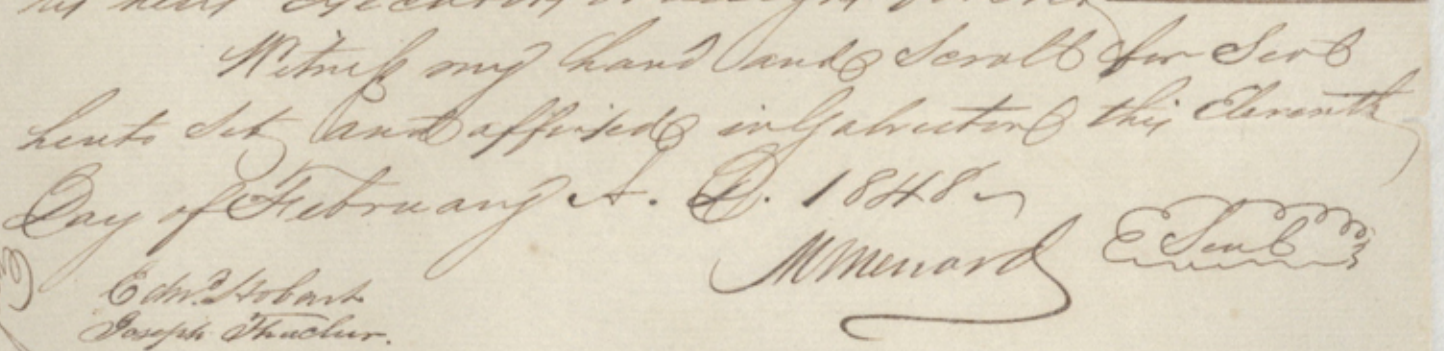 Witness my hand and Scroll for Seal
hereto Set, and affixed in Galveston this Eleventh
Day of February A. D. 1848
MMenard Seal
Edwd. Hobart
Joseph Thacher.